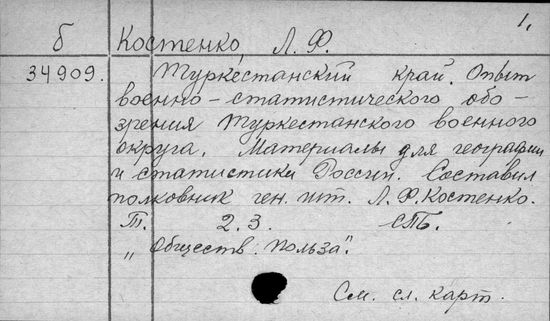 1.
б Костенко, Л. Ф.
34909. Туркестанский край. Опыт
военно-статистического обо-
зрения Туркестанского военного
округа. Материалы для географии
и статистики России. Составил
полковник ген. шт. Л. Ф. Костенко.
Т. 2.3. СПБ.
„Обществ. польза".
См. сл. карт.